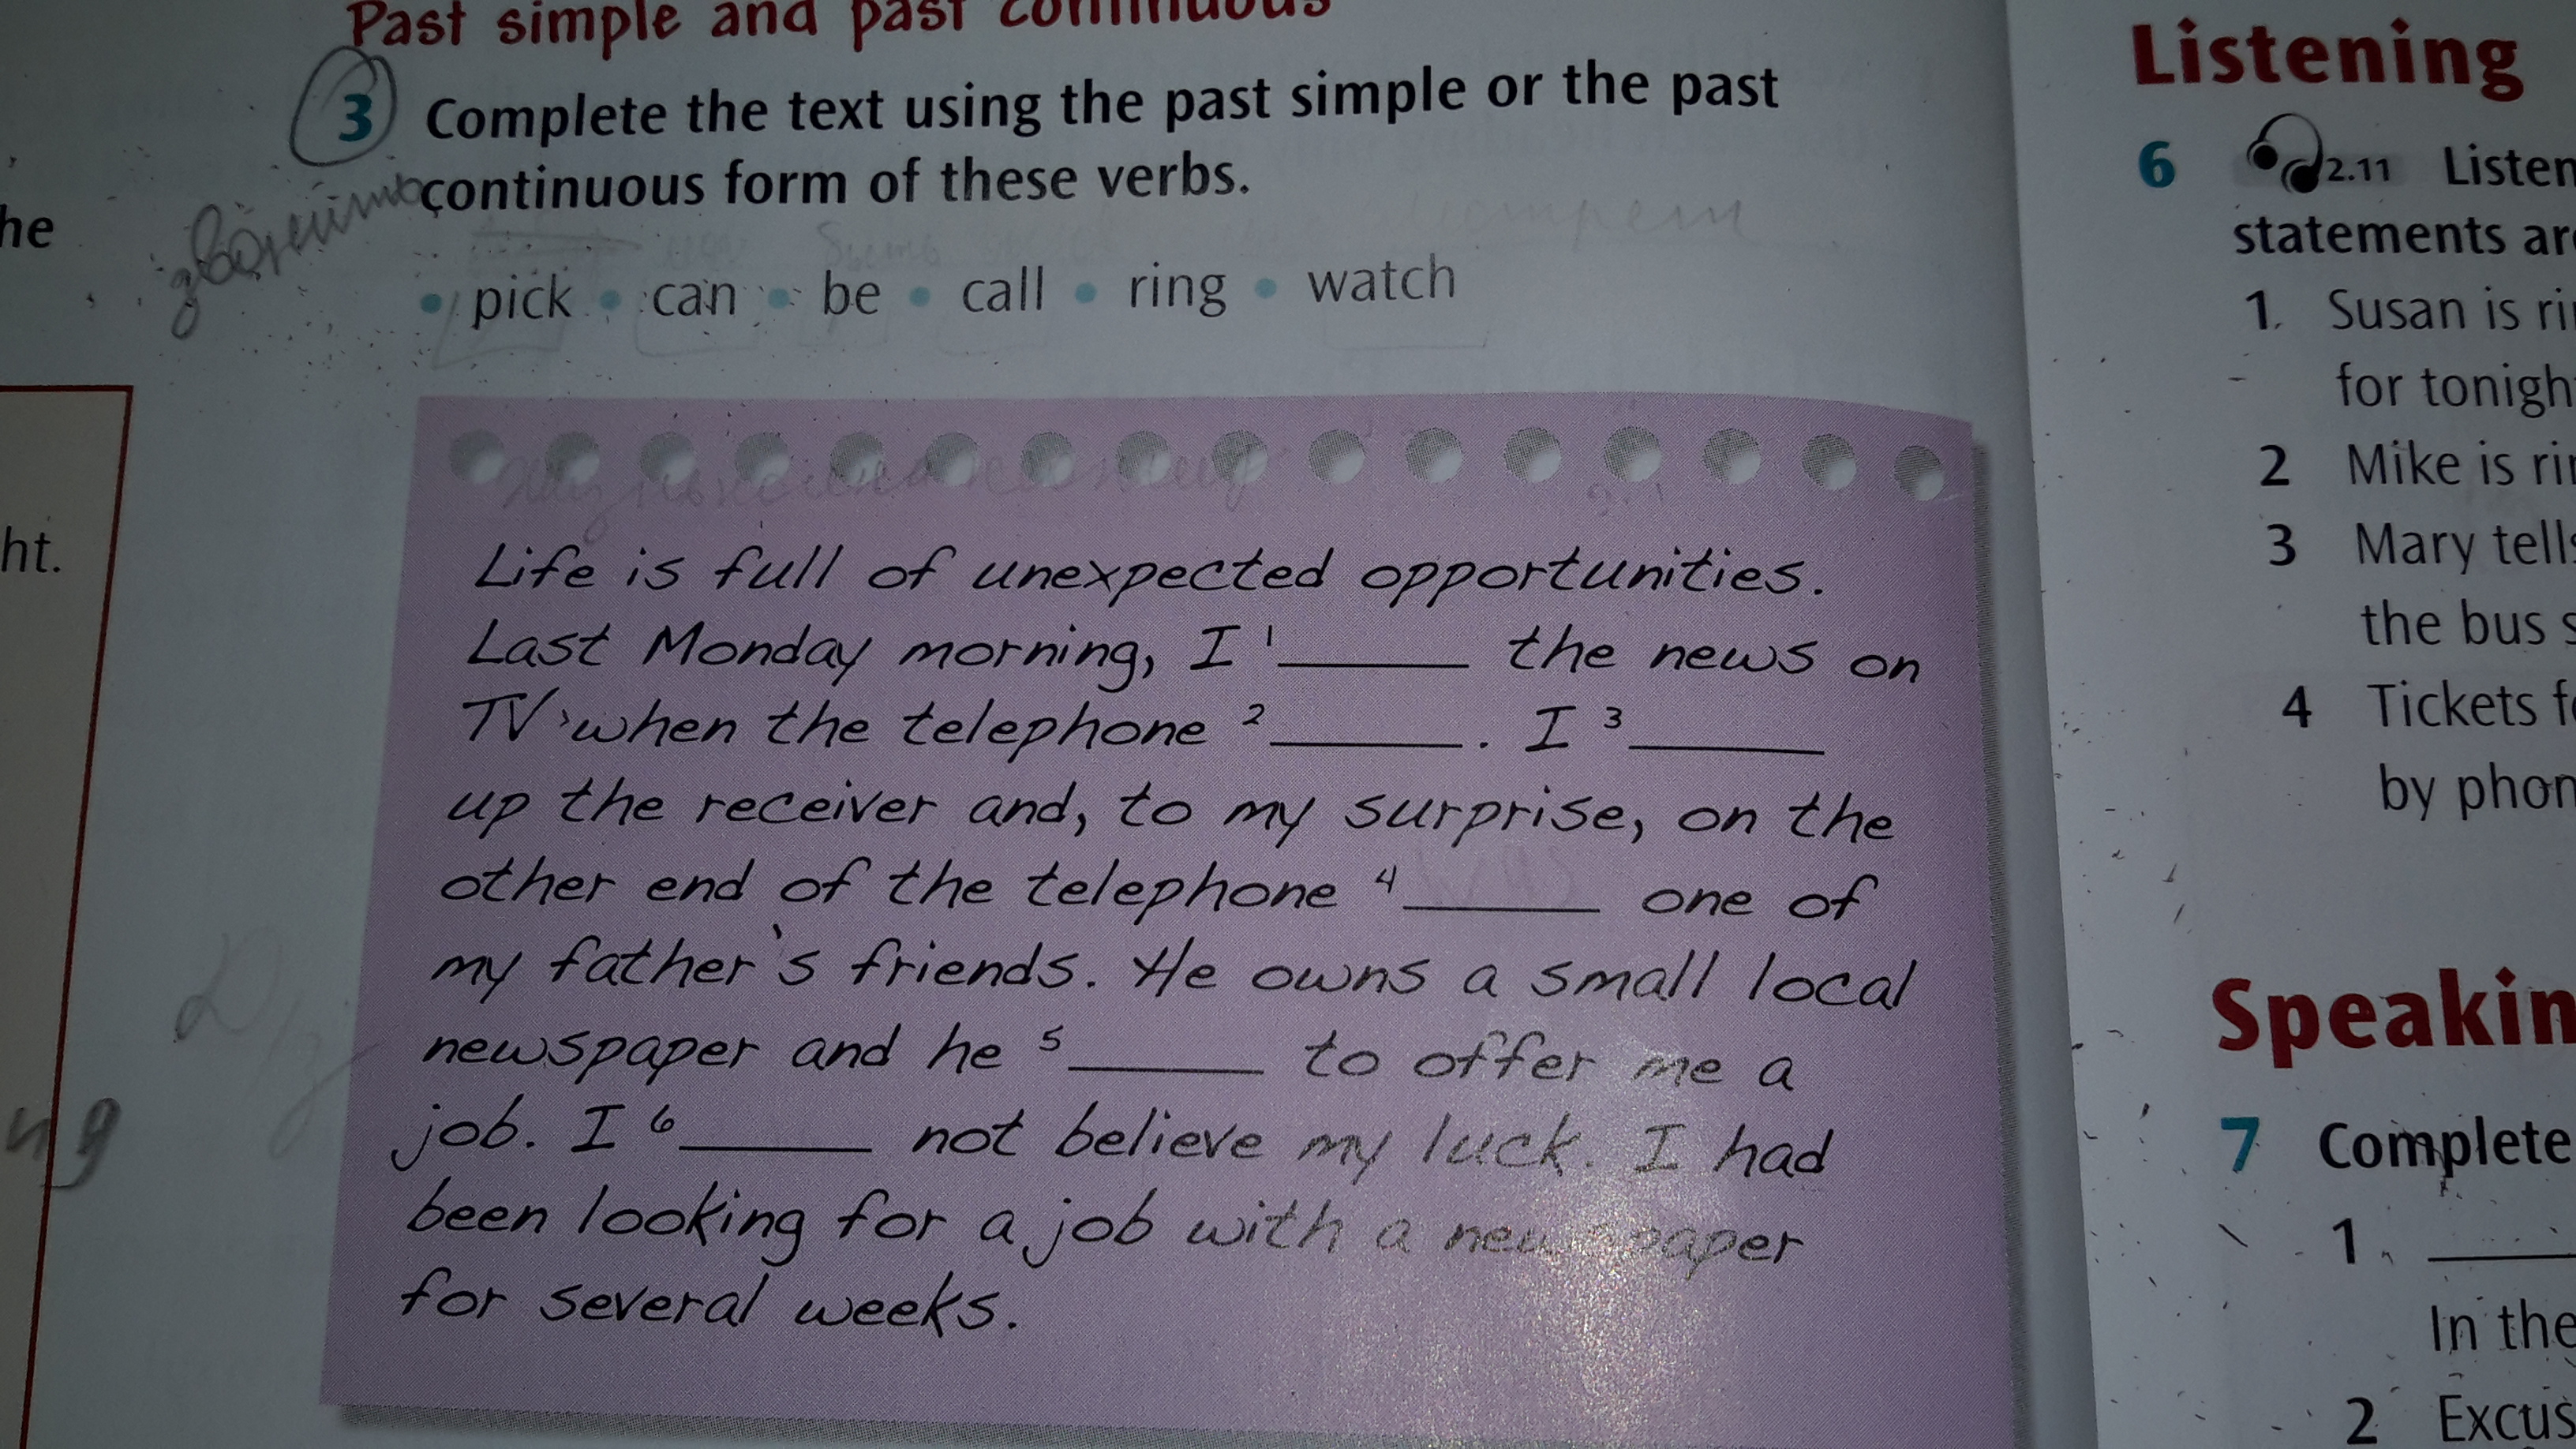 Past simple and past continuous
3 Complete the text using the past simple or the past
continuous form of these verbs.
• pick • can • be • call • ring • watch
Life is full of unexpected opportunities.
Last Monday morning, I 1______ the news on
TV when the telephone 2______. I 3______
up the receiver and, to my surprise, on the
other end of the telephone 4______ one of
my father's friends. He owns a small local
newspaper and he 5______ to offer me a
job. I 6______ not believe my luck. I had
been looking for a job with a newspaper
for several weeks.
he
ht.
ng
Listening
6 2.11 Listen
statements ar
1. Susan is ri
for tonigh
2 Mike is ri
3 Mary tells
the bus s
4 Tickets f
by phon
Speakin
7 Complete
1 ______
In the
2 Excus